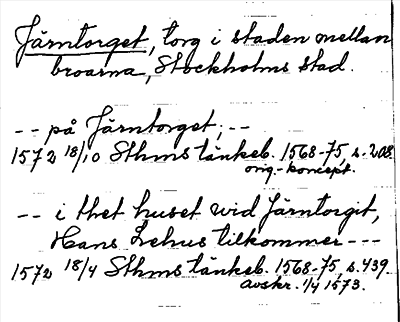 Järntorget, torg i staden mellan
broarna, Stockholms stad.
-- på Järntorget, --
1572 18/10 Sthms tänkeb. 1568-75, s. 208.
orig.-koncept.
-- i thet huset wid Järntorgit,
Hans Zehus tilkommer ---
1572 18/4 Sthms tänkeb. 1568-75, s. 439.
avskr. 1/4 1573.